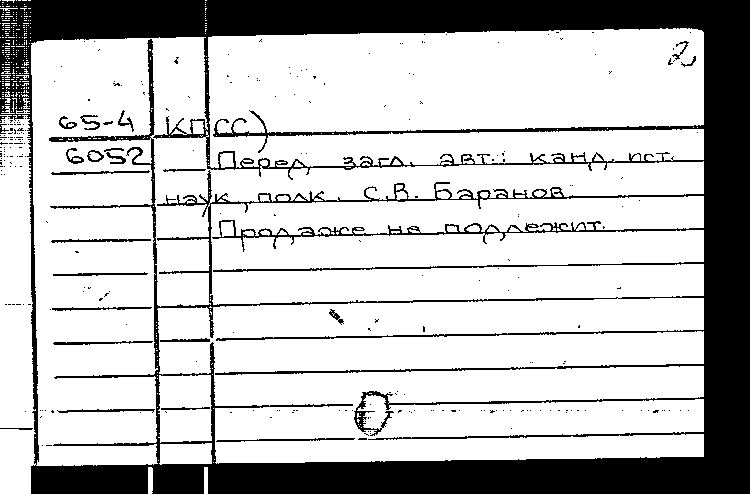 2
65-4 КПСС)
6052 Перед загл. авт.: канд. ист.
наук, полк. С.В. Баранов.
Продаже не подлежит.